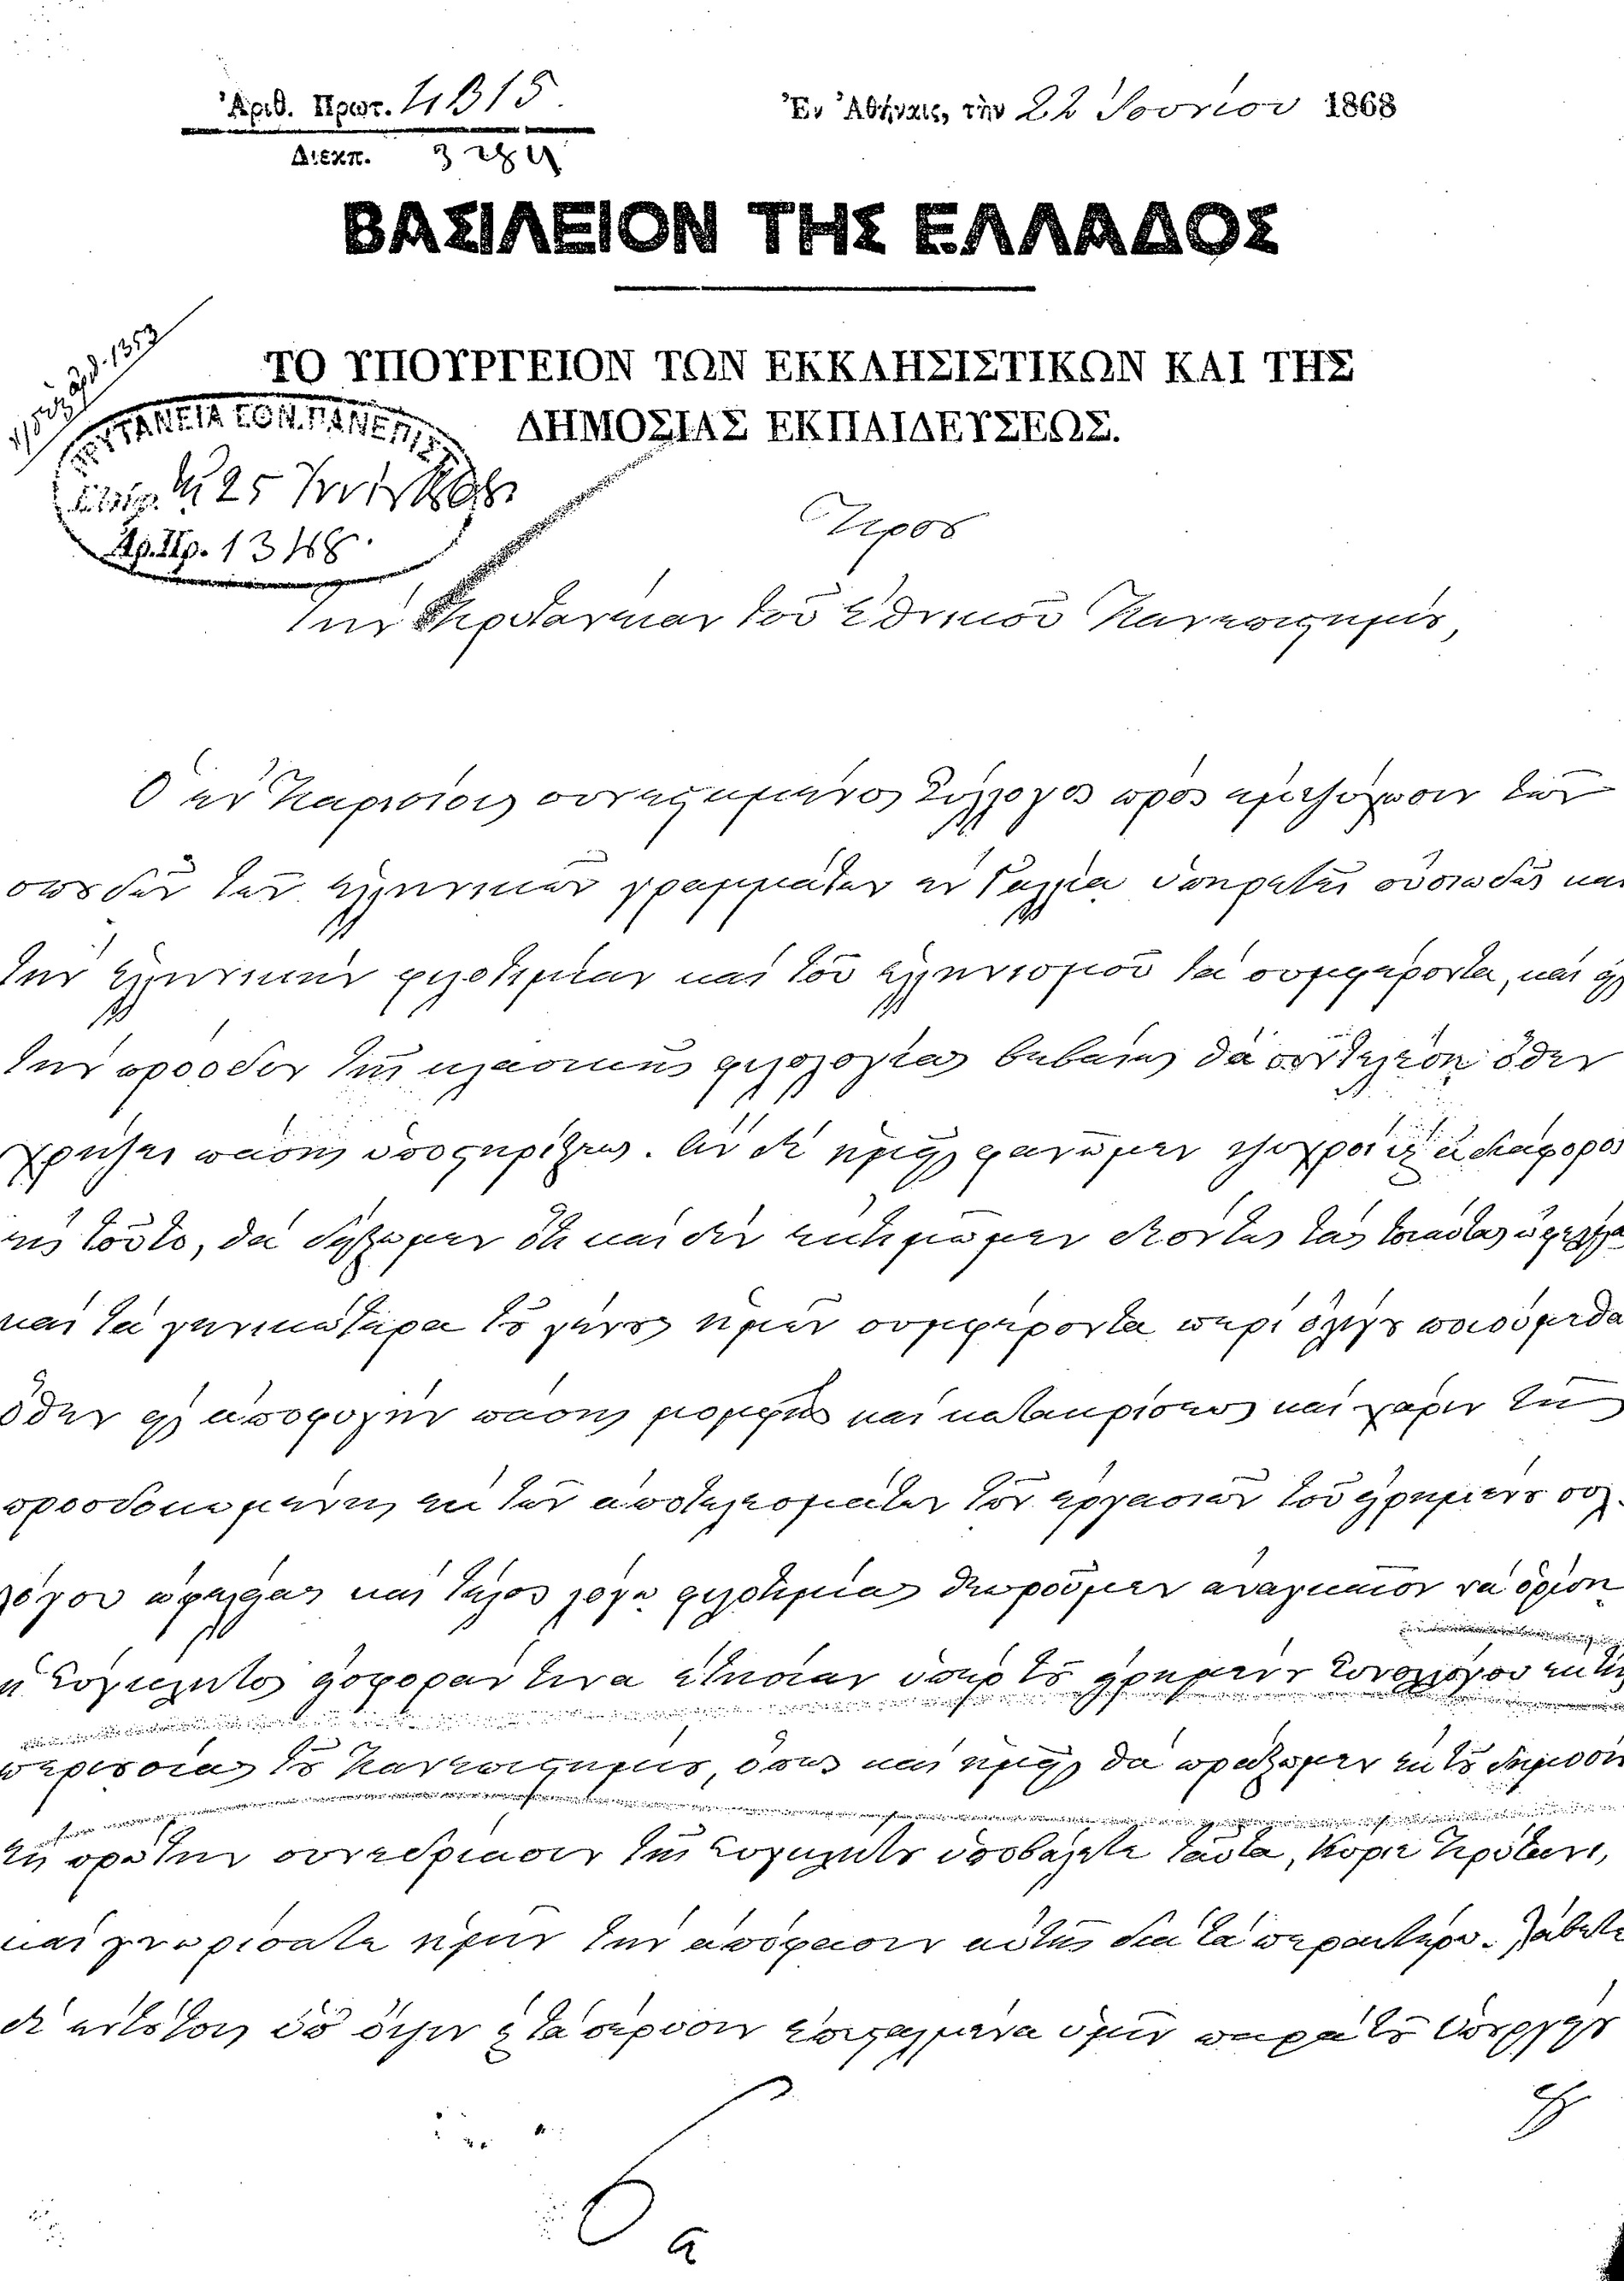 Ἀριθ. Πρωτ. 4315.
Ἐν Ἀθήναις, τὴν 22 Ἰουνίου 1868
Διεκπ.
ΒΑΣΙΛΕΙΟΝ ΤΗΣ ΕΛΛΑΔΟΣ
ΤΟ ΥΠΟΥΡΓΕΙΟΝ ΤΩΝ ΕΚΚΛΗΣΙΣΤΙΚΩΝ ΚΑΙ ΤΗΣ
ΔΗΜΟΣΙΑΣ ΕΚΠΑΙΔΕΥΣΕΩΣ.
ἀριθ. 1353
ΠΡΥΤΑΝΕΙΑ ΕΘΝ. ΠΑΝΕΠΙΣΤ
τῇ 25 Ἰουνίου 1868
Ἀρ. Πρ. 1348.
Πρὸς
Τὴν Πρυτανείαν τοῦ Ἐθνικοῦ Πανεπιστημίου,
Ὁ ἐν Παρισίοις συνεστημένος Σύλλογος πρὸς ἐμψύχωσιν τῶν
σπουδῶν τῶν ἑλληνικῶν γραμμάτων ἐν Γαλλίᾳ ὑπηρετεῖ οὐσιωδῶς καὶ
τὴν ἑλληνικὴν φιλοτιμίαν καὶ τοῦ ἑλληνισμοῦ τὰ συμφέροντα, καὶ εἰς
τὴν πρόοδον τῆς κλασικῆς φιλολογίας βεβαίως θὰ συντελέσῃ ὅθεν
χρῄζει πάσης ὑποστηρίξεως. Ἂν δὲ ἡμεῖς φανῶμεν ψυχροὶ ἢ ἀδιάφοροι
εἰς τοῦτο, θὰ δείξωμεν ὅτι καὶ δὲν ἐκτιμῶμεν δεόντως τὰς τοιαύτας ὠφελείας
καὶ τὰ γενικώτερα τοῦ γένους ἡμῶν συμφέροντα περὶ ὀλίγου ποιούμεθα
ὅθεν εἰς ἀποφυγὴν πάσης μομφῆς καὶ κατακρίσεως καὶ χάριν τῆς
προσδοκωμένης ἐκ τῶν ἀποτελεσμάτων τῶν ἐργασιῶν τοῦ εἰρημένου συλ-
λόγου ὠφελείας καὶ τέλος λόγῳ φιλοτιμίας θεωροῦμεν ἀναγκαῖον νὰ ὁρίσῃ
ἡ Σύγκλητος εἰσφοράν τινα ἐτησίαν ὑπὲρ τοῦ εἰρημένου Συλλόγου ἐκ τῆς
περιουσίας τοῦ Πανεπιστημίου, ὅπως καὶ ἡμεῖς θὰ πράξωμεν ἐκ τοῦ δημοσίου
εἰς πρώτην συνεδρίασιν τῆς Συγκλήτου ὑποβάλετε ταῦτα, Κύριε Πρύτανι,
καὶ γνωρίσατε ἡμῖν τὴν ἀπόφασιν αὐτῆς διὰ τὰ περαιτέρω. Λάβετε
δὲ ἐν τούτοις ὑπ' ὄψιν τὰ πέρυσιν ἐπεσταλμένα ὑμῖν παρὰ τοῦ Ὑπουργείου